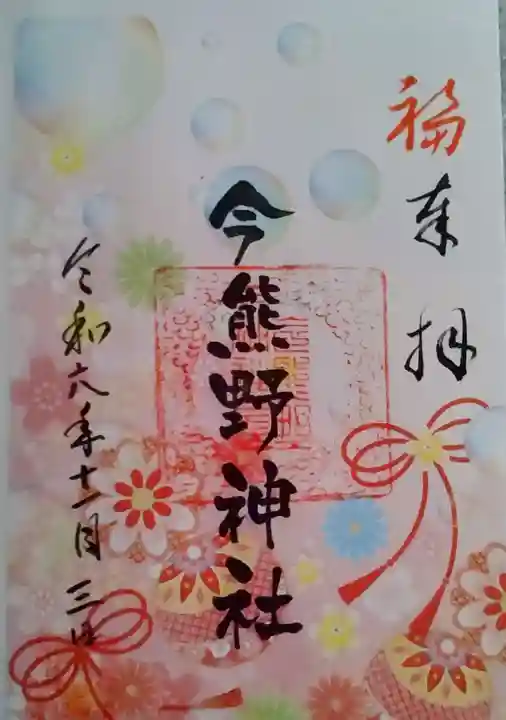 福
奉拝
今熊野神社
令和六年十一月三日